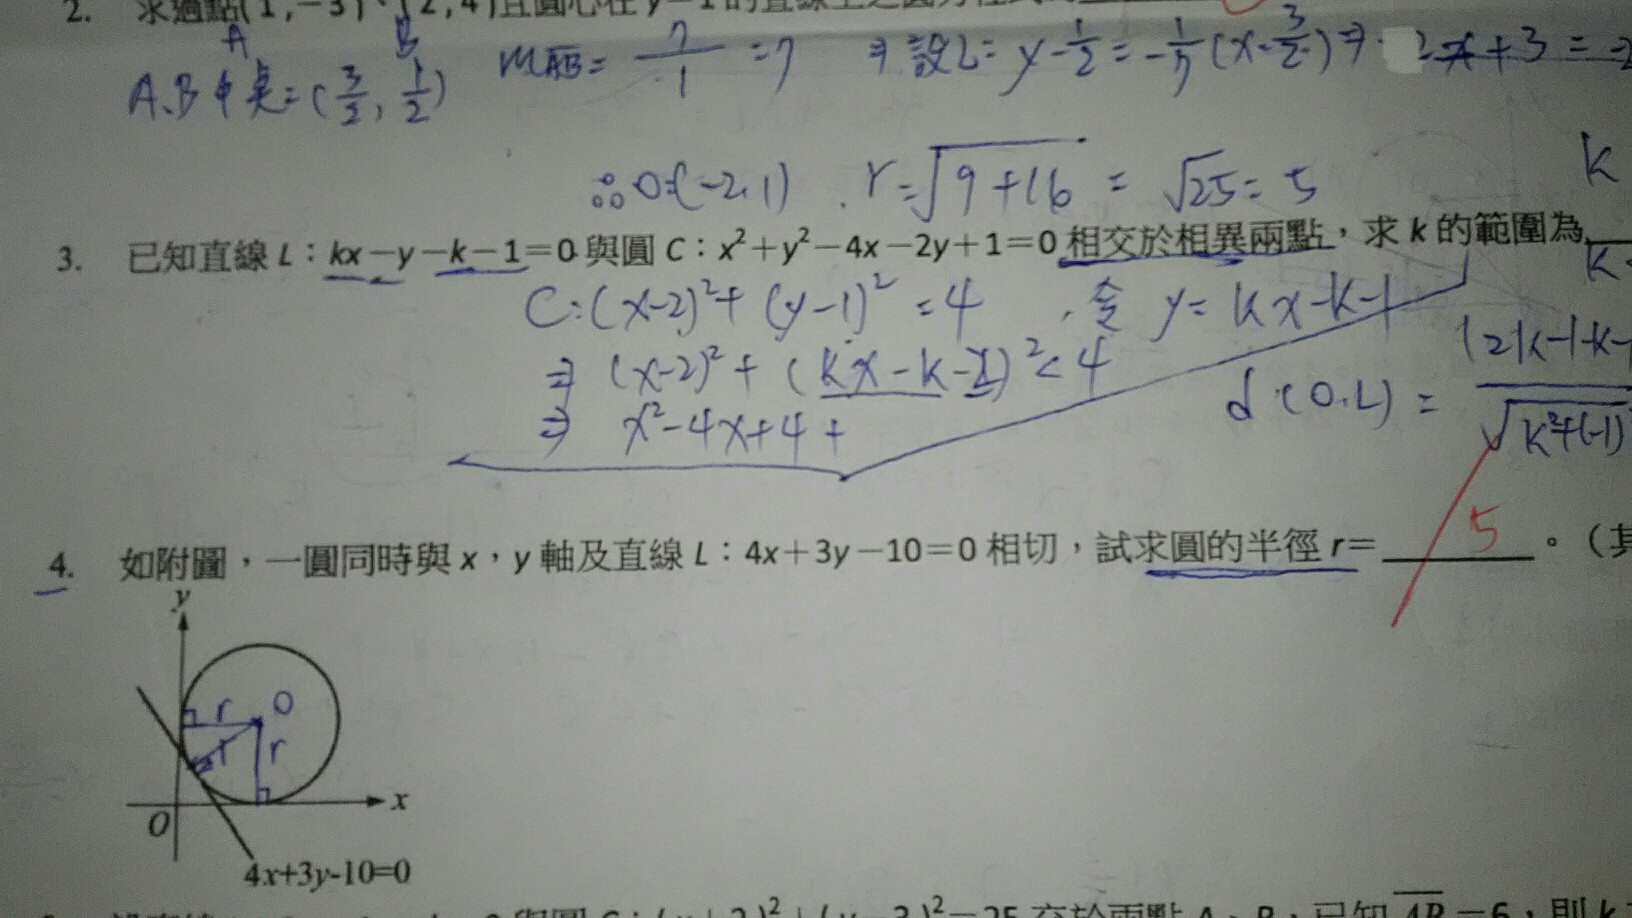 2. 求過點(1,-3)、(2,4)且圓心在y=1的直線上之圓方程式
A B
A.B中點=(3/2, 1/2) mAB = 7/1 = 7 ⇒ 設L: y-1/2 = -1/7(x-3/2) ⇒
∴O:(-2,1) r=√9+16 = √25 = 5
k
3. 已知直線 L：kx-y-k-1=0 與圓 C：x²+y²-4x-2y+1=0 相交於相異兩點，求 k 的範圍為
C:(x-2)²+(y-1)²=4 , 令 y=kx-k-1
⇒ (x-2)²+(kx-k-2)²<4
⇒ x²-4x+4+
d(O.L) = |2k-1-k- / √k²+(-1)
4. 如附圖，一圓同時與 x，y 軸及直線 L：4x+3y-10=0 相切，試求圓的半徑 r= 5 。（其
y
r O
r r
O x
4x+3y-10=0